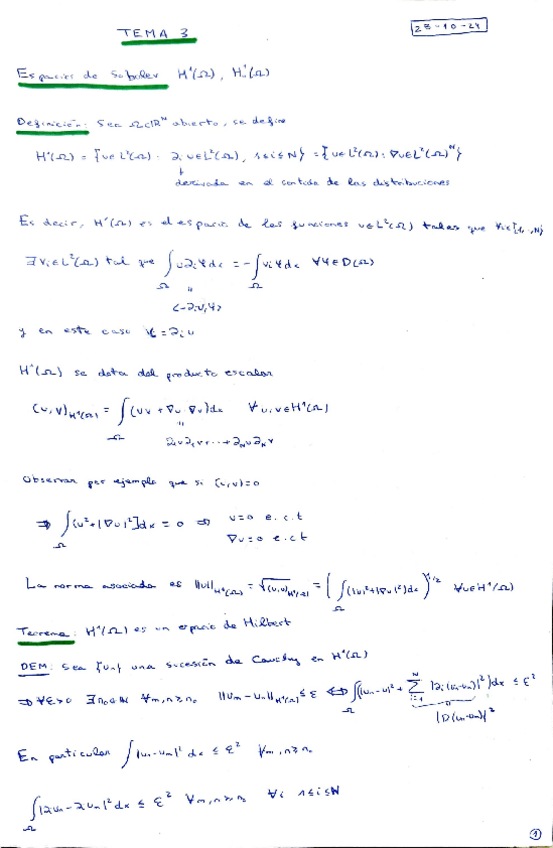 TEMA 3
28-10-24
Espacios de Sobolev H¹(Ω), H₀¹(Ω)
Definición: Sea Ω⊂ℝᴺ abierto, se define
H¹(Ω) = {u∈L²(Ω): ∂ᵢu∈L²(Ω), 1≤i≤N} = {u∈L²(Ω): ∇u∈L²(Ω)ᴺ}
derivada en el sentido de las distribuciones
Es decir, H¹(Ω) es el espacio de las funciones u∈L²(Ω) tales que ∀i∈{1,..,N}
∃vᵢ∈L²(Ω) tal que ∫_Ω u∂ᵢφdx = -∫_Ω vᵢφdx ∀φ∈D(Ω)
<-∂ᵢu,φ>
y en este caso vᵢ = ∂ᵢu
H¹(Ω) se dota del producto escalar
(u,v)_H¹(Ω) = ∫_Ω (uv + ∇u·∇v)dx ∀u,v∈H¹(Ω)
∂₁u∂₁v+...+∂_N u∂_N v
Observar por ejemplo que si (u,u)=0
⇒ ∫_Ω [u²+|∇u|²]dx = 0 ⇒ u=0 e.c.t
∇u=0 e.c.t
La norma asociada es ||u||_H¹(Ω) = √(u,u)_H¹(Ω) = (∫_Ω (|u|²+|∇u|²)dx)^1/2 ∀u∈H¹(Ω)
Teorema: H¹(Ω) es un espacio de Hilbert
DEM: Sea {uₙ} una sucesión de Cauchy en H¹(Ω)
⇒ ∀ε>0 ∃n₀∈ℕ ∀m,n≥n₀ ||uₘ-uₙ||_H¹(Ω) ≤ ε ⇔ ∫_Ω [(uₙ-uₘ)² + Σ_{i=1}^N |∂ᵢ(uₙ-uₘ)|²]dx ≤ ε²
|D(uₙ-uₘ)|²
En particular ∫|uₙ-uₘ|² dx ≤ ε² ∀m,n≥n₀
∫_Ω |∂ᵢuₙ-∂ᵢuₘ|²dx ≤ ε² ∀m,n≥n₀ ∀i 1≤i≤N
1